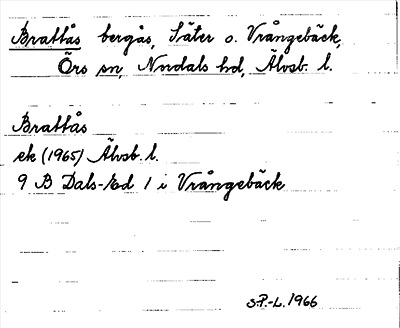 Brattås bergås, Säter o. Vrångebäck,
Örs sn, Nordals hd, Älvsb. l.
Brattås
ek (1965) Älvsb. l.
9 B Dals-Ed 1 i Vrångebäck
S.P.-L. 1966